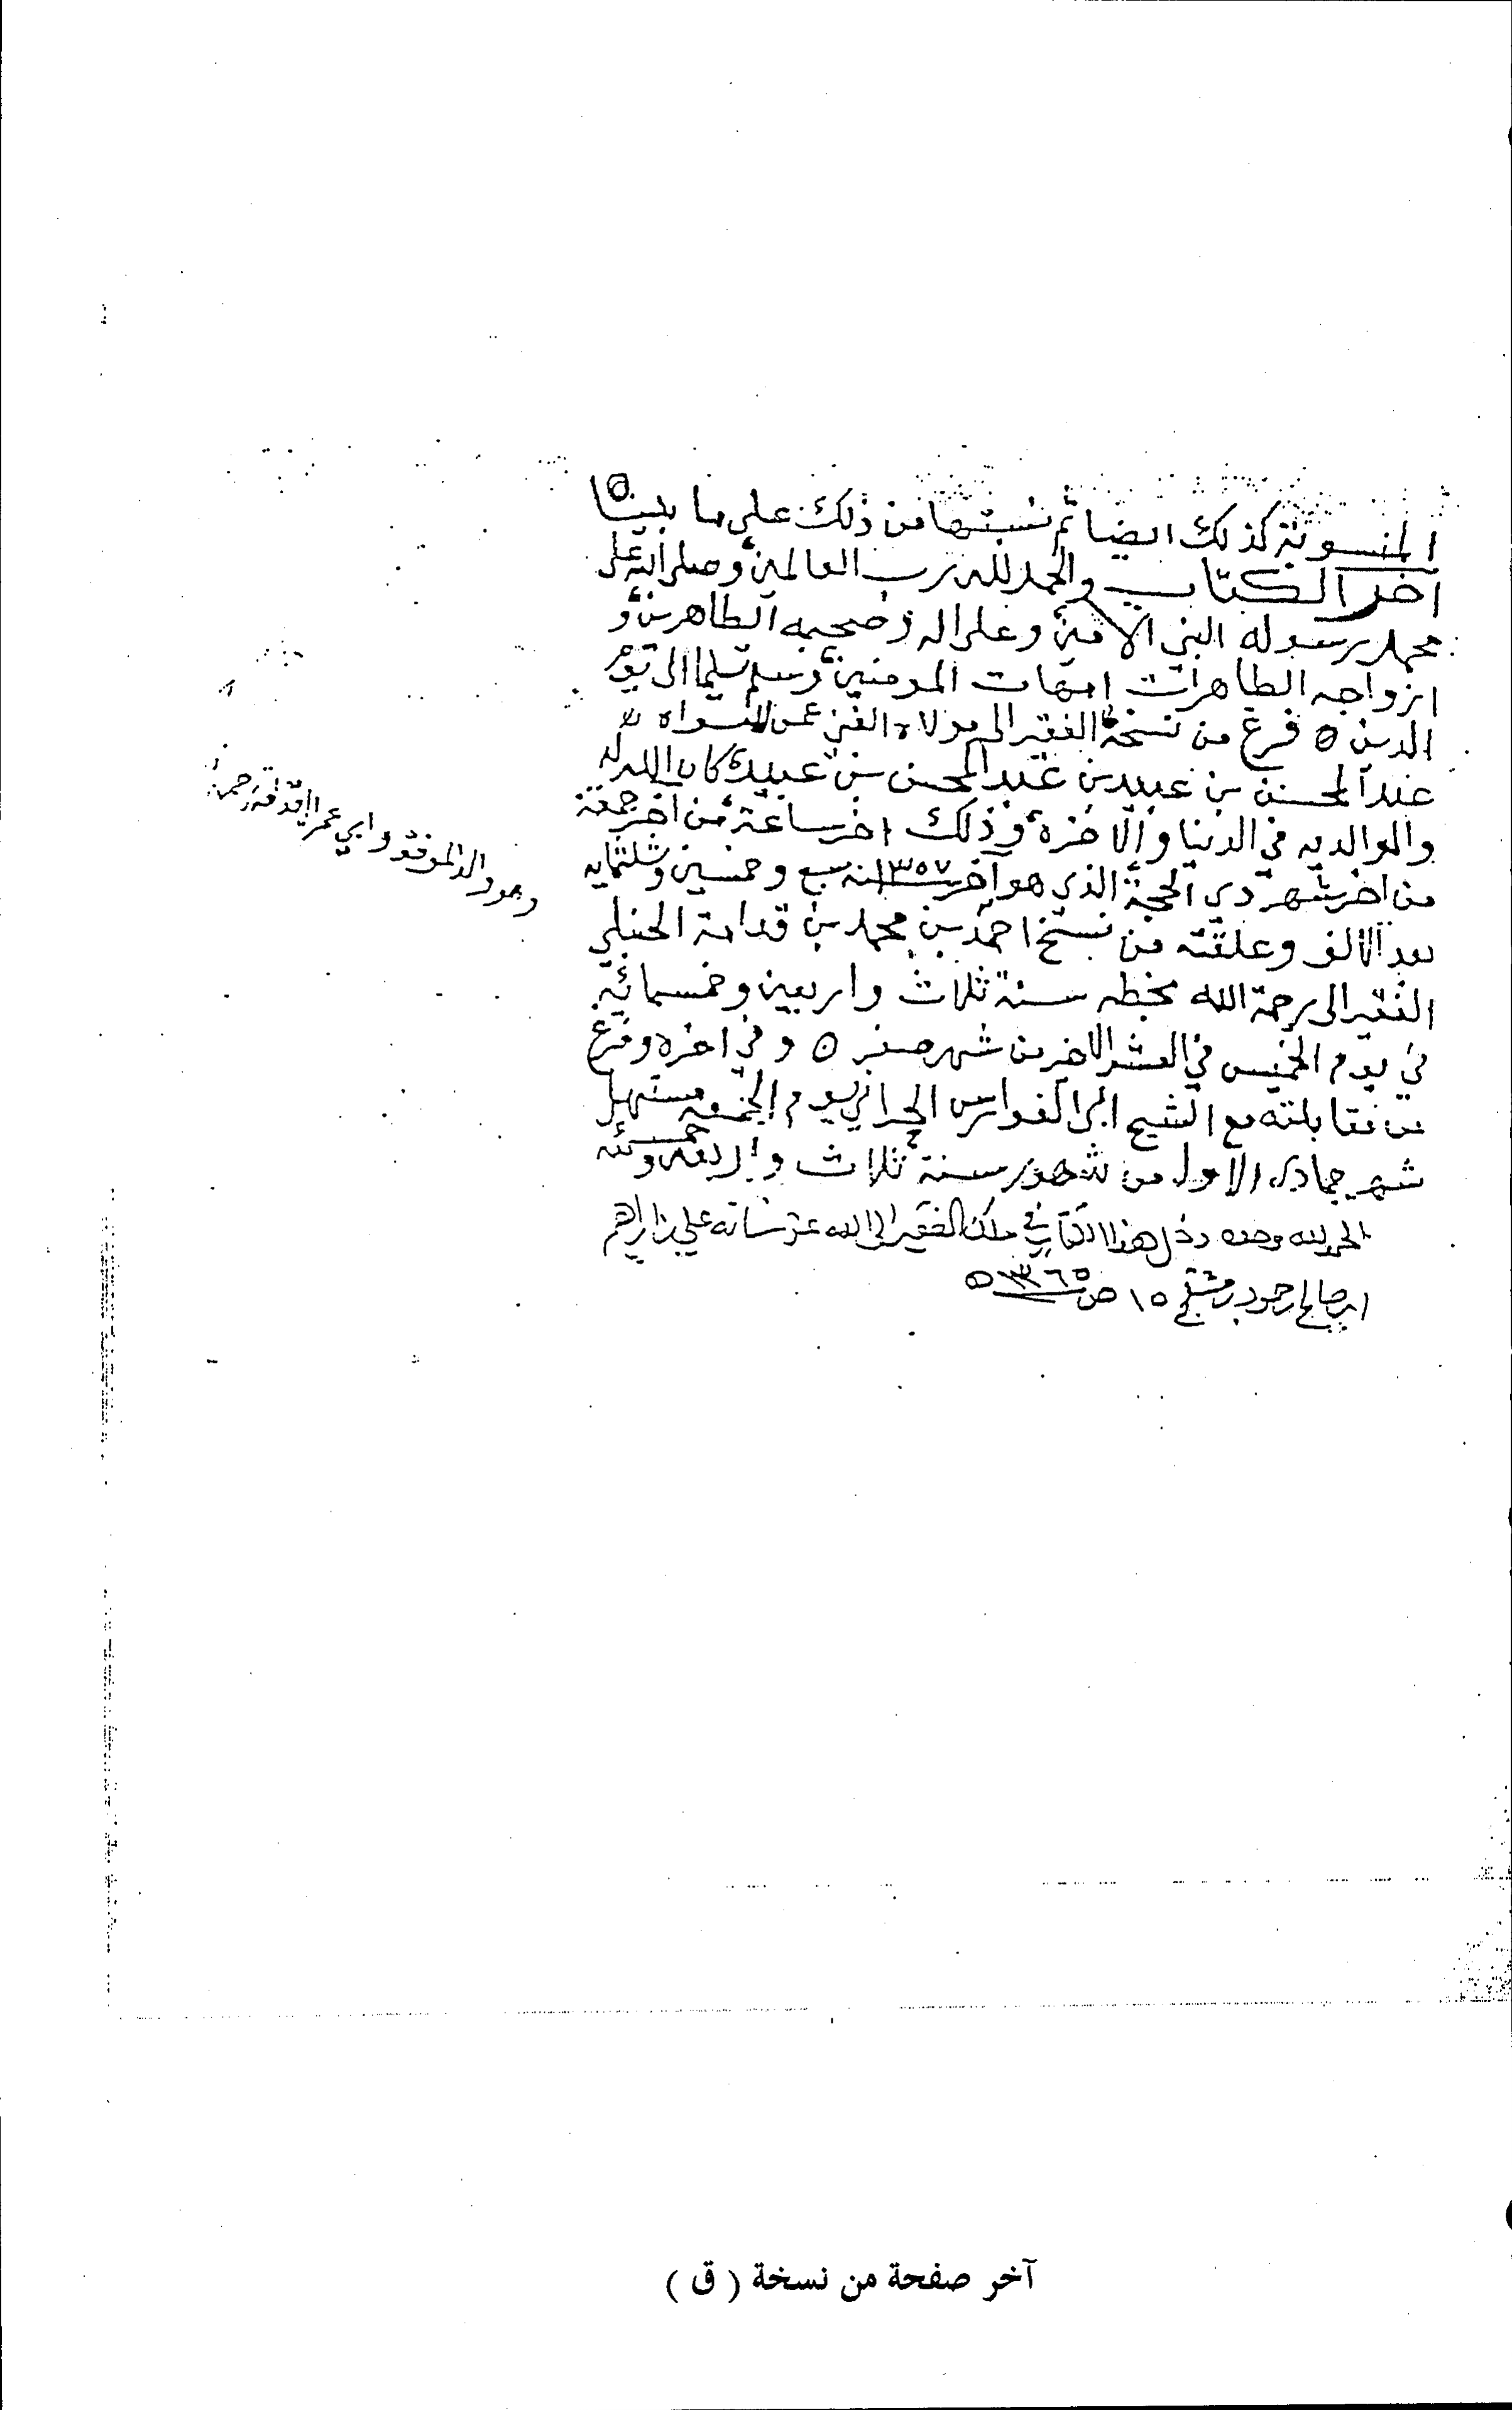 المنسوبة كذلك ايضا ثم نسبتها من ذلك على ما بينا ه
آخر الكتاب والحمد لله رب العالمين وصلى الله على
محمد رسوله النبي الامين وعلى اله وصحبه الطاهرين و
ازواجه الطاهرات امهات المومنين وسلم تسليما الى يوم
الدين ه فرغ من نسخه الفقير الى مولاه الغني عمن سواه
عبد المحسن بن عبيد بن عبد المحسن بن عبيد كان الله له
والوالديه في الدنيا والاخرة وذلك اخر ساعة من اخر جمعة
من اخر شهر ذي الحجة الذي هو آخر ١٣٥٧ سنة سبع وخمسين وثلثمايه
بعد الالف وعلقته من نسخ احمد بن محمد بن قدامة الحنبلي
الفقير الى رحمة الله بخطه سنة ثلاث واربعين وخمسمائة
في يوم الخميس في العشر الاخر من شهر صفر ه وفي اخره وفرغ
من مقابلته مع الشيخ ابي الفوارس الحراني يوم الجمعة مستهل
شهر جمادى الاول من شهور سنة ثلاث واربعين وخمسمئه
الحمد لله وحده دخل هذا الكتاب في ملك الفقير الى الله عز شانه علي بن ابراهيم
١٥ ص ١٣٦٥ ه
وهو والد الموفق وابي عمر
آخر صفحة من نسخة ( ق )